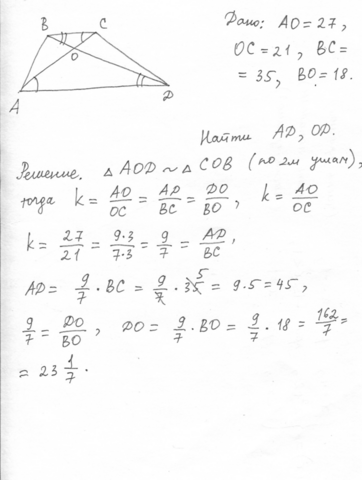 B C
O
A D
Дано: AO = 27,
OC = 21, BC =
= 35, BO = 18.
Найти AD, OD.
Решение. △ AOD ~ △ COB (по 2м углам),
тогда k = AO/OC = AD/BC = DO/BO, k = AO/OC
k = 27/21 = 9·3/7·3 = 9/7 = AD/BC,
AD = 9/7 · BC = 9/7 · 35 5 = 9·5 = 45,
9/7 = DO/BO, DO = 9/7 · BO = 9/7 · 18 = 162/7 =
= 23 1/7.